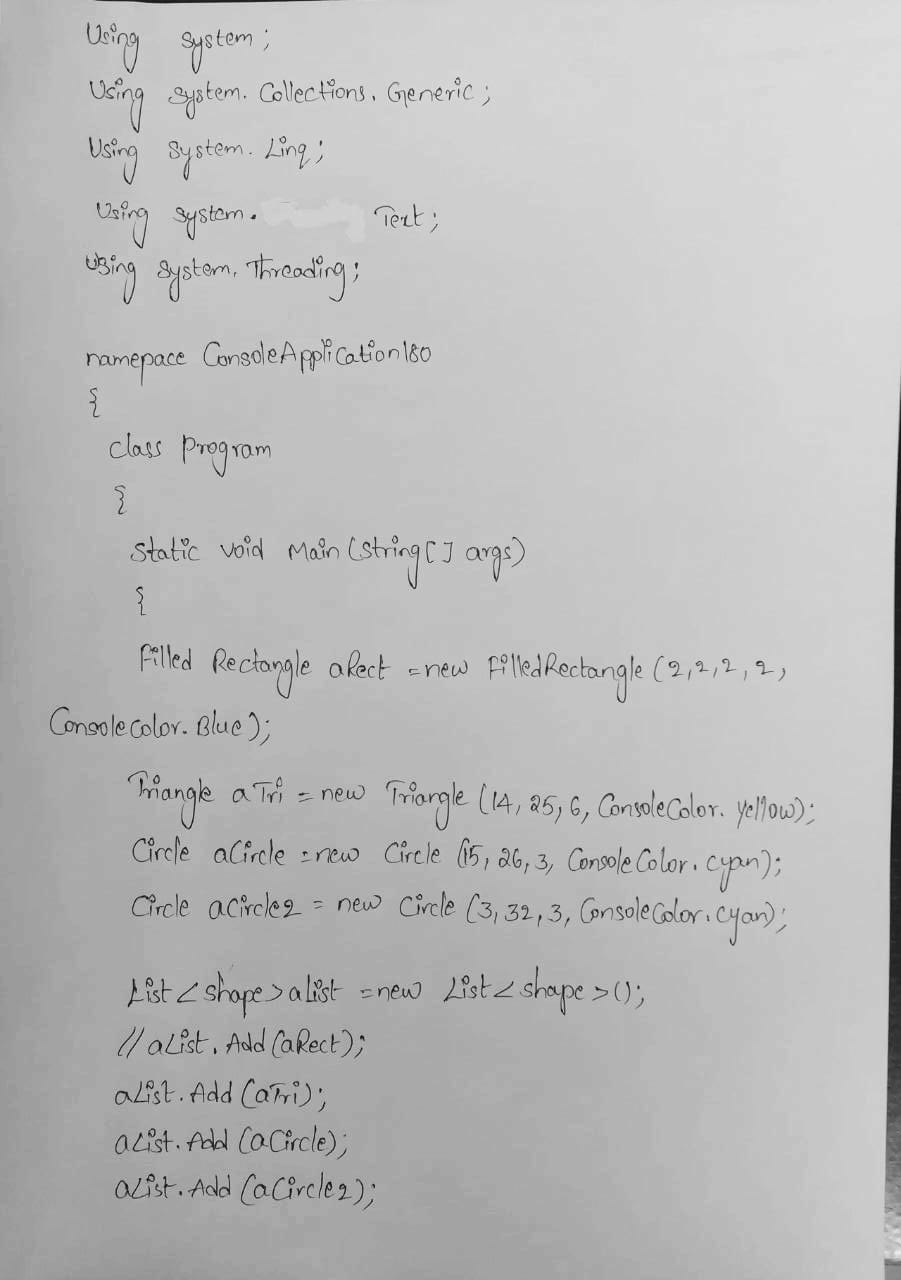 Using system;
Using system. Collections. Generic;
Using system. Linq;
Using system. Text;
Using system. Threading;
namepace ConsoleApplication180
{
class Program
{
static void Main (string[] args)
{
Filled Rectangle aRect = new FilledRectangle (2,2,2,2,
Consolecolor. Blue);
Triangle aTri = new Triangle (14, 25, 6, ConsoleColor. yellow);
Circle aCircle = new Circle (15, 26, 3, ConsoleColor. cyan);
Circle aCircle2 = new Circle (3, 32, 3, ConsoleColor. cyan);
List < shape > alist = new List < shape > ();
// aList. Add (aRect);
aList. Add (aTri);
aList. Add (aCircle);
aList. Add (aCircle2);